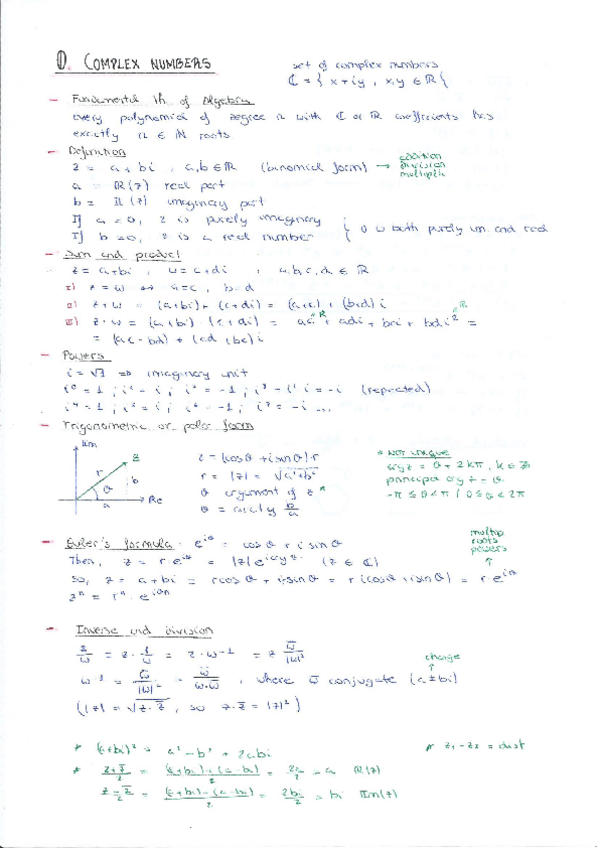 0. COMPLEX NUMBERS
set of complex numbers
ℂ = { x + iy , x,y ∈ ℝ {
- Fundamental th. of Algebra
every polynomial of degree n with ℂ or ℝ coefficients has
exactly n ∈ ℕ roots
- Definition
z = a + bi , a,b ∈ ℝ (binomial form) → addition division multiplic
a = ℝ(z) real part
b = (z) imaginary part
If a = 0, z is purely imaginary
If b = 0, z is a real number { 0 is both purely im. and real
- Sum and product
z = a+bi , w = c+di , a,b,c,d ∈ ℝ
I) z = w ↔ a=c, b=d
II) z + w = (a+bi) + (c+di) = (a+c) + (b+d) i
III) z · w = (a+bi) · (c+di) = ac + adi + bci + bdi² =
= (ac - bd) + (ad + bc) i
- Powers
⇒ imaginary unit
i⁰ = 1 ; i¹ = i ; i² = -1 ; i³ = i² i = -i (repeated)
i⁴ = 1 ; i⁵ = i ; i⁶ = -1 ; i⁷ = -i ...
- Trigonometric or polar form
Im
z
r
b
θ
a
Re
z = (cosθ + i sinθ) · r
r = |z| = √a²+b²
θ argument of z *
θ = b/a
* NOT UNIQUE
arg z = θ + 2kπ , k ∈ ℤ
principal arg z = θ
-π ≤ θ < π / 0 ≤ θ < 2π
- Euler's formula: e^iθ = cos θ + i sin θ
multip
roots
powers
Then, z = r e^iθ = |z| e^i arg z (z ∈ ℂ)
So, z = a + bi = r cos θ + i sin θ = r (cos θ + i sin θ) = r e^iθ
zⁿ = rⁿ · e^iθn
- Inverse and division
z/w = z · 1/w = z · w⁻¹ = z w̄/|w|²
w⁻¹ = w̄/|w|² = w̄/w·w̄ , where w̄ conjugate (a±bi)
change
(|z| = √z·z̄ , so z·z̄ = |z|²)
* (a+bi)² = a² - b² + 2abi
z₁ - z₂ = dist
* z+z̄/2 = (a+bi)+(a-bi)/2 = 2a/2 = a ℝ(z)
z-z̄/2 = (a+bi)-(a-bi)/2 = 2bi/2 = bi Im(z)